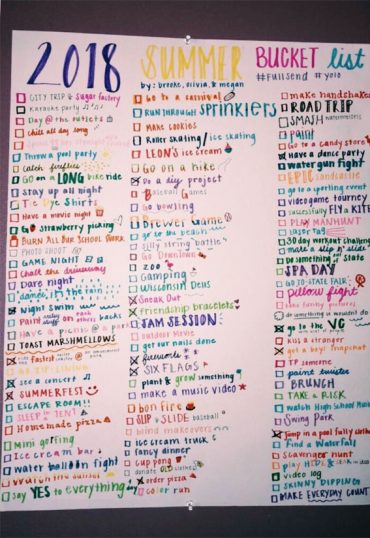 2018 SUMMER BUCKET list
by: brooke, olivia, & megan
#fullsend #yolo
CITY TRIP & Sugar factory
Karaoke party
Day @ the outlets
chill all day long
Throw a pool party
Catch fireflies
GO on a LONG bike ride
stay up all night
Tie Dye Shirts
Have a movie night
GO strawberry picking
BURN ALL OUR SCHOOL WORK
PHOTO SHOOT
GAME NIGHT
Chalk the driveway
Dare night
dance in the rain
Night Swim
Paint on each others backs
Have a picnic @ a park
TOAST MARSHMELLOWS
GO ZIP LINING
see a concert
SUMMERFEST
ESCAPE ROOM!!
SLEEP IN TENT
Homemade pizza
mini golfing
Ice cream bar
water balloon fight
Watch the sunset
say YES to everything day
Go to a carnival
RUN THROUGH sprinklers
MAKE COOKIES
Roller skating/ice skating
LEON'S ice cream
GO on a hike
Do a diy project
Baseball Games
Go bowling
Brewer Game
go to the beach
silly string battle
Go Downtown
ZOO
Camping
Wisconsin Dells
Sneak Out
friendship bracelets
JAM SESSION
outdoor movie
get our nails done
fireworks
SIX FLAGS
plant & grow something
make a music video
bon fire
SLIP & SLIDE baseball
blind makeovers
ice cream truck
fancy dinner
cup pong
donate old clothes
order pizza
color run
make handshakes
ROAD TRIP
SMASH watermelons
paint
Go to a candy store
Have a dance party
water gun fight
EPIC sandcastle
go to a sporting event
videogame tourney
successfully FLY A KITE
PLAY MANHUNT
laser tag
30 day workout challenge
make a slip n' slide
Do something
SPA DAY
GO TO STATE FAIR
pillow fight
take family pictures
do something we wouldn't do
go to the VG
kiss a stranger
get a boys snapchat
TP someone
paint twister
BRUNCH
TAKE A RISK
watch High School Musical
Swing Park
jump in a pool fully clothed
Find a Waterfall
Scavenger hunt
video log
SKINNY DIPPING
MAKE EVERYDAY COUNT